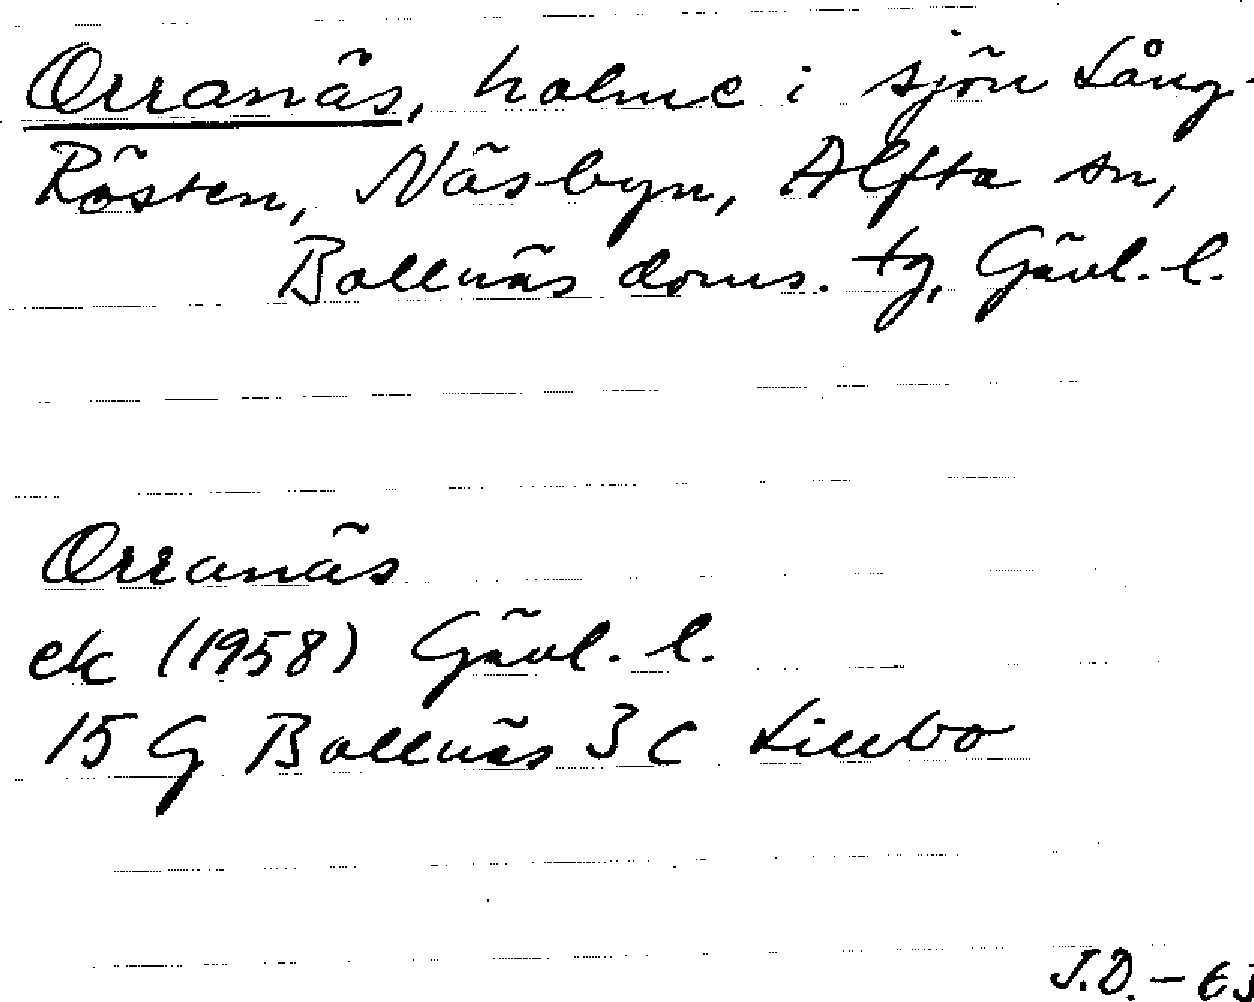 Orranäs, holme i sjön Lång-
Rösten, Näsbyn, Alfta sn,
Bollnäs doms. tg, Gävl. l.
Orranäs
ek (1958) Gävl. l.
15 G Bollnäs 3 c Lillbo
J.D. - 63